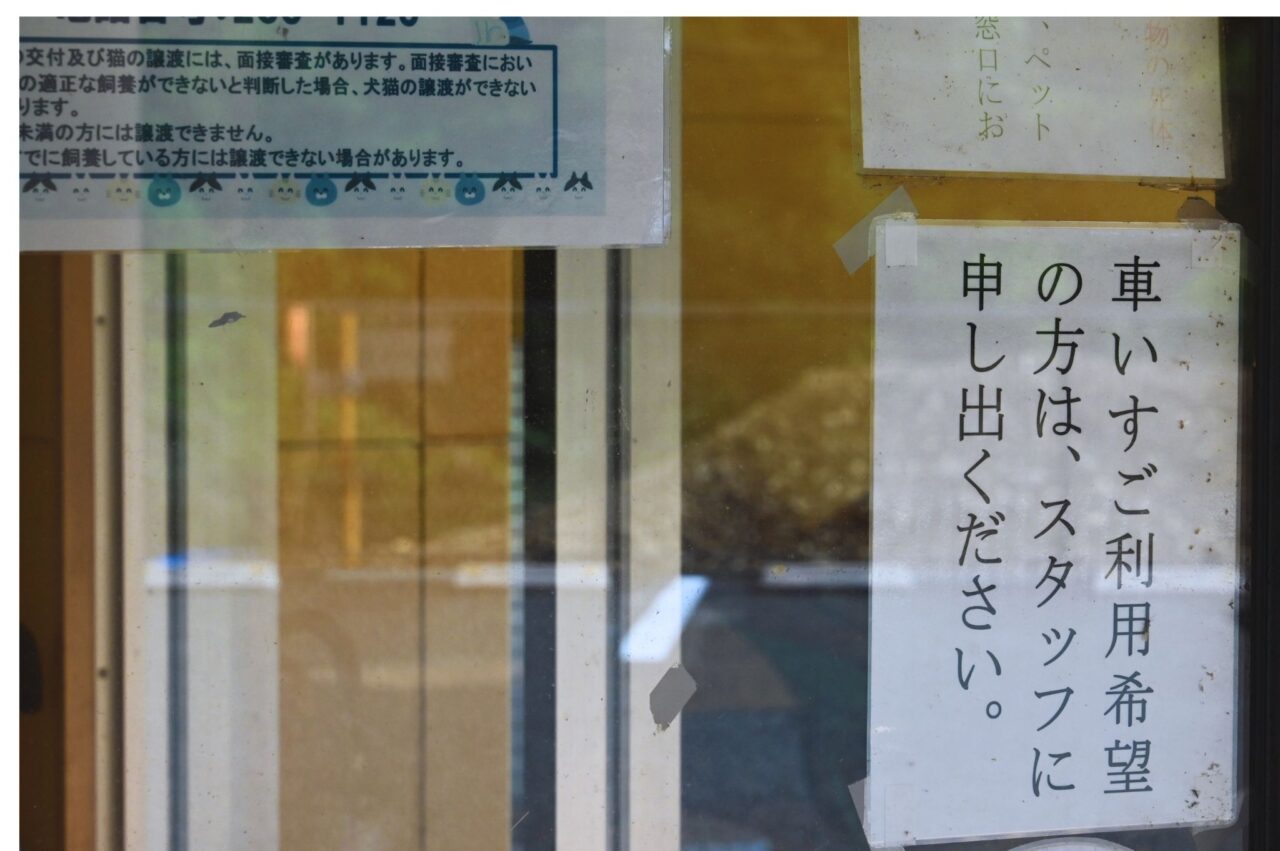 電話番号:260-1126
交付及び猫の譲渡には、面接審査があります。面接審査におい
の適正な飼養ができないと判断した場合、犬猫の譲渡ができない
ります。
未満の方には譲渡できません。
でに飼養している方には譲渡できない場合があります。
物の死体
、ペット
窓口にお
車いすご利用希望
の方は、スタッフに
申し出ください。